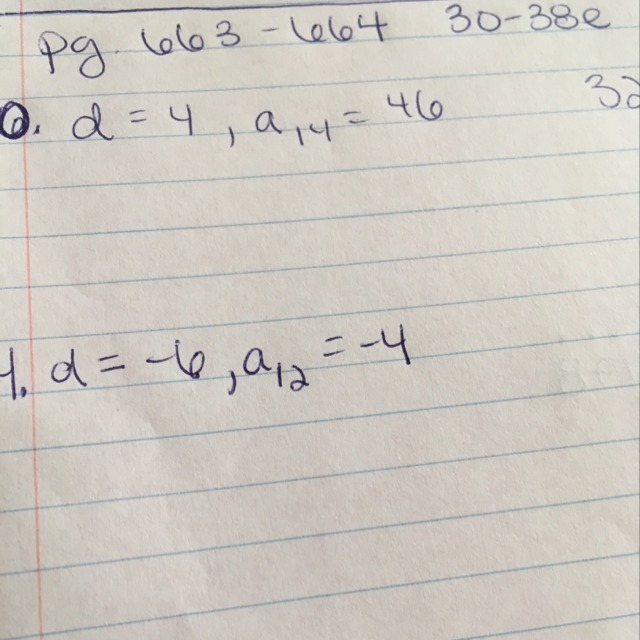 pg. 663-664 30-38e
0. d = 4, a₁₄ = 46 32
4. d = -6, a₁₂ = -4